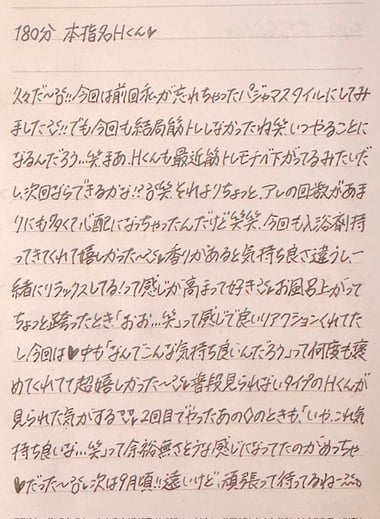 180分 本指名Hくん♥
久々だ〜!!今回は前回私が忘れちゃったパジャマスタイルにしてみ
ました!!でも今回も結局筋トレしなかったね笑 いつやることに
なるんだろう…笑 まあ、Hくんも最近筋トレモチベ下がってるみたいだ
し、次回ならできるかな!?笑 それよりちょっと、アレの回数があま
りにも多くて心配になっちゃったんだけど笑笑 今回も入浴剤持
ってきてくれて嬉しかった〜香りがあると気持ち良さ違うし、一
緒にリラックスしてる!って感じが高まって好き お風呂上がって
ちょっと踊ったとき「おお…笑」って感じで良いリアクションくれてた
し、今回は♥中も「なんでこんな気持ち良いんだろう」って何度も褒
めてくれてて超嬉しかった〜普段見られないタイプのHくんが
見られた気がする 2回目でやったあの◇のときも、「いや、これ気
持ち良いな…笑」って余裕無さそうな感じになってたのがめっちゃ
♥だった〜次は9月頃!!遠いけど、頑張って待ってるねー